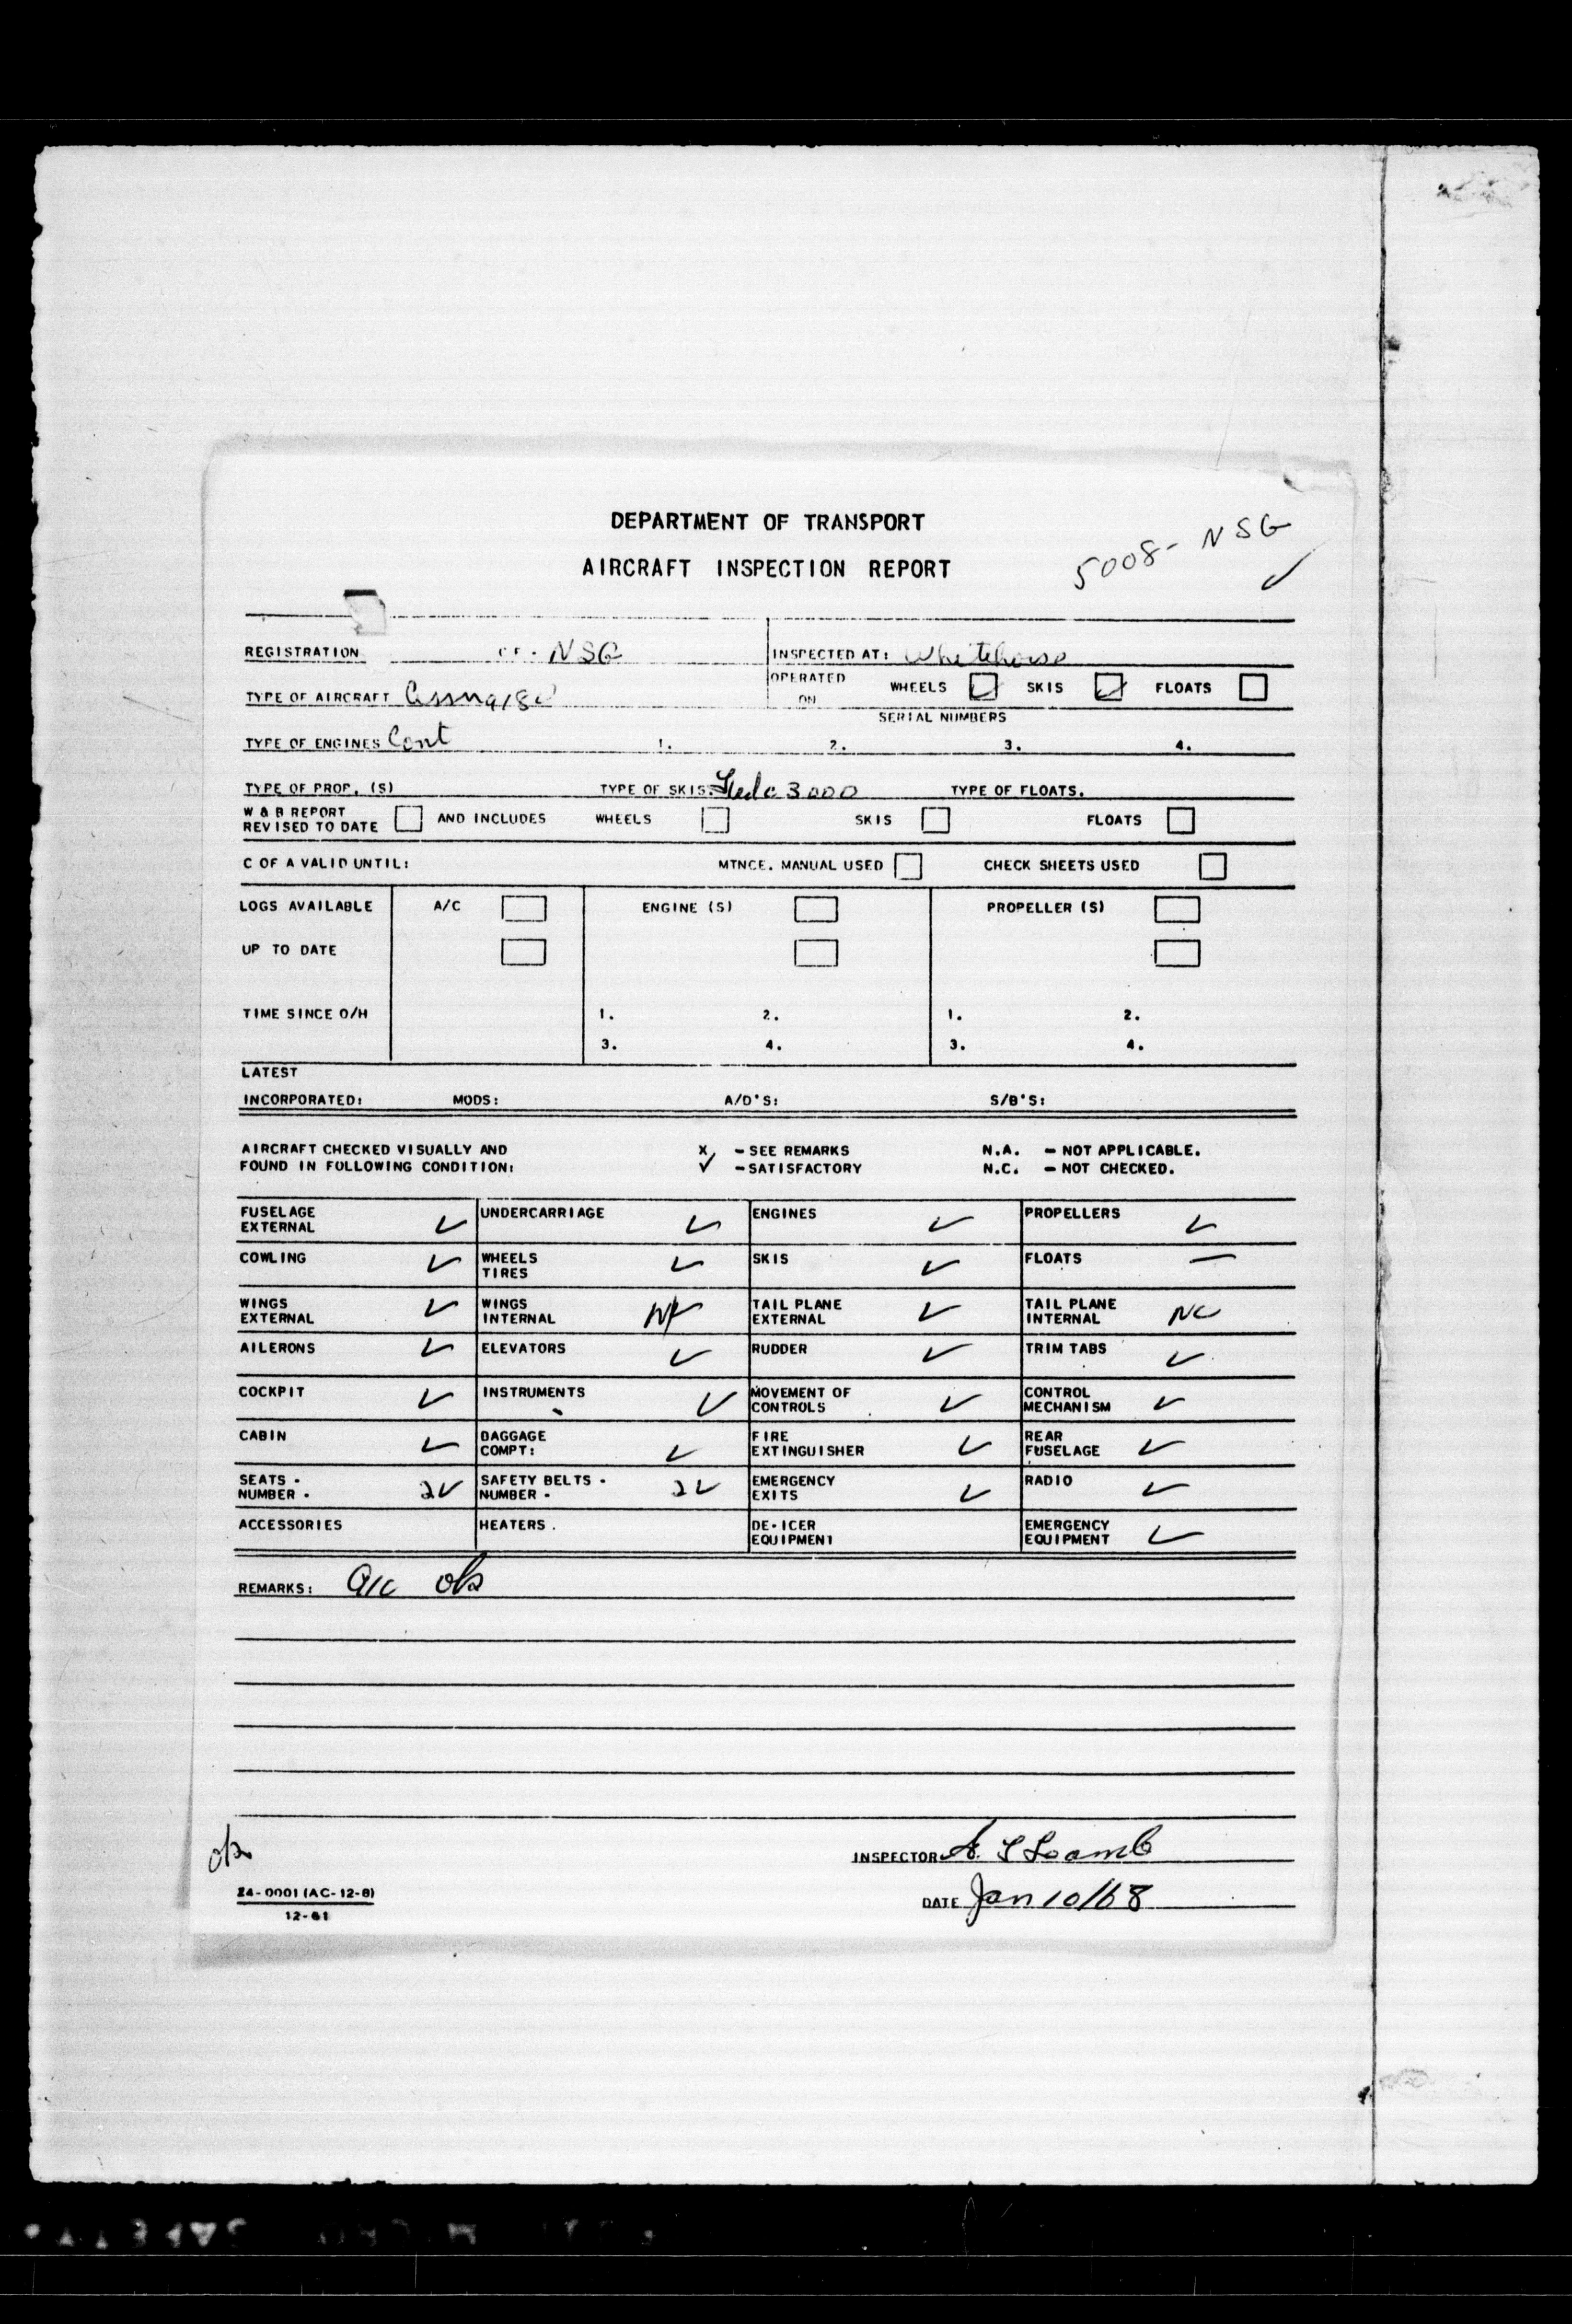 DEPARTMENT OF TRANSPORT
5008- NSG
AIRCRAFT INSPECTION REPORT
✓
REGISTRATION CF - NSG INSPECTED AT: Whitehorse
TYPE OF AIRCRAFT Cessna 180 OPERATED ON WHEELS ✓ SKIS ✓ FLOATS
SERIAL NUMBERS
TYPE OF ENGINES Cont 1. 2. 3. 4.
TYPE OF PROP. (S) TYPE OF SKIS. 3000 TYPE OF FLOATS.
W & B REPORT
REVISED TO DATE AND INCLUDES WHEELS SKIS FLOATS
C OF A VALID UNTIL: MTNCE. MANUAL USED CHECK SHEETS USED
LOGS AVAILABLE A/C ENGINE (S) PROPELLER (S)
UP TO DATE
TIME SINCE O/H 1. 2. 1. 2.
3. 4. 3. 4.
LATEST
INCORPORATED: MODS: A/D'S: S/B'S:
AIRCRAFT CHECKED VISUALLY AND X - SEE REMARKS N.A. - NOT APPLICABLE.
FOUND IN FOLLOWING CONDITION: ✓ - SATISFACTORY N.C. - NOT CHECKED.
FUSELAGE EXTERNAL ✓ UNDERCARRIAGE ✓ ENGINES ✓ PROPELLERS ✓
COWLING ✓ WHEELS TIRES ✓ SKIS ✓ FLOATS —
WINGS EXTERNAL ✓ WINGS INTERNAL TAIL PLANE EXTERNAL ✓ TAIL PLANE INTERNAL NC
AILERONS ✓ ELEVATORS ✓ RUDDER ✓ TRIM TABS ✓
COCKPIT ✓ INSTRUMENTS ✓ MOVEMENT OF CONTROLS ✓ CONTROL MECHANISM ✓
CABIN ✓ BAGGAGE COMPT: ✓ FIRE EXTINGUISHER ✓ REAR FUSELAGE ✓
SEATS - NUMBER - 2 ✓ SAFETY BELTS - NUMBER - 2 ✓ EMERGENCY EXITS ✓ RADIO ✓
ACCESSORIES HEATERS. DE-ICER EQUIPMENT EMERGENCY EQUIPMENT ✓
REMARKS: A/C ok
ok
INSPECTOR A.
24-0001 (AC-12-8)
12-61
DATE Jan 10/68